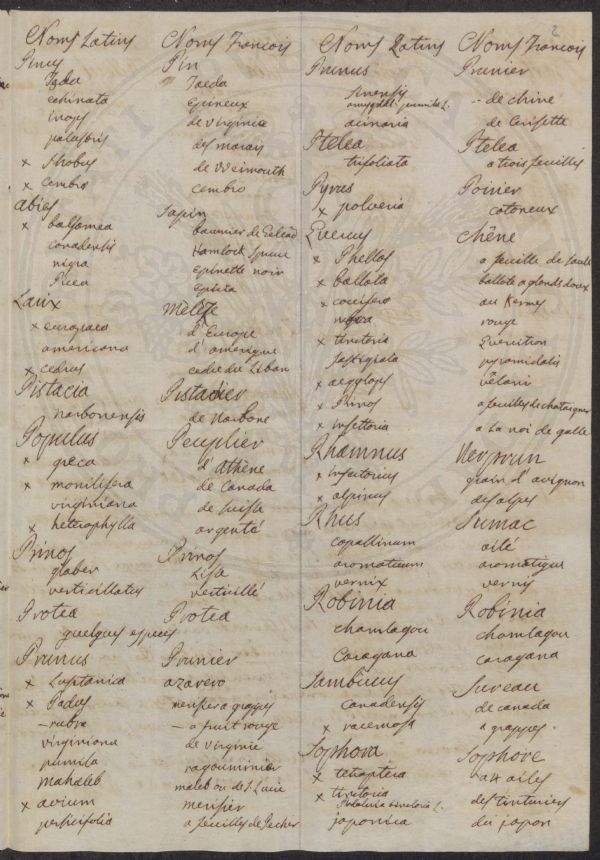 2
Noms Latins Noms Francois
Pinus Pin
Taeda " Taeda
echinata Epineux
inops de virginie
palustris des marais
x Strobus de Weimouth
x Cembro cembro
Abies Sapin
x balsamea baumier de Gilead
canadensis Hamlock Spruce
nigra epinette noir
Picea epicia
Larix Mélèze
x europaea d'Europe
americana d'amerique
x cedrus cedre du Liban
Pistacia Pistachier
narbonensis de Narbone
Populus Peuplier
x greca d'Athène
x monilifera de Canada
virginiana de Suisse
x heterophylla argenté
Prinos Prinos
glaber Lisse
verticillatus verticillé
Protea Protea
quelques especes
Prunus Prunier
x Lusitanica azarero
x Padus merisier a grappes
– rubra – a fruit rouge
virginiana de virginie
pumila ragouminier
mahaleb maleb ou de S. Lucie
x avium merisier
persicifolia a feuilles de Pecher
Noms Latins Noms Francois
Prunus Prunier
sinensis -- de chine
amygdal. pumila L.
acinaria de Cerisette
Ptelea Ptelea
trifoliata a trois feuilles
Pyrus Poirier
x polveria cotoneux
Quercus Chêne
x Phellos a feuille de saule
x ballota ballote a glands doux
x coccifera au Kermes
rubra rouge
x tinctoria Quercitron
fastigiata pyramidalis
x aegylops Velani
x Prinos a feuilles de chataigner
x infectoria a la noi de galle
Rhamnus Nerprun
x infectorius grain d'avignon
x alpinus des alpes
Rhus Sumac
copallinum ailé
aromaticum aromatique
vernix vernis
Robinia Robinia
chamlagou chamlagou
Caragana caragana
Sambucus Sureau
canadensis de canada
x racemosa a grappes
Sophora Sophore
x tetraptera a 4 ailes
x tinctoria des tinturies
tinctoria L.
japonica du japon